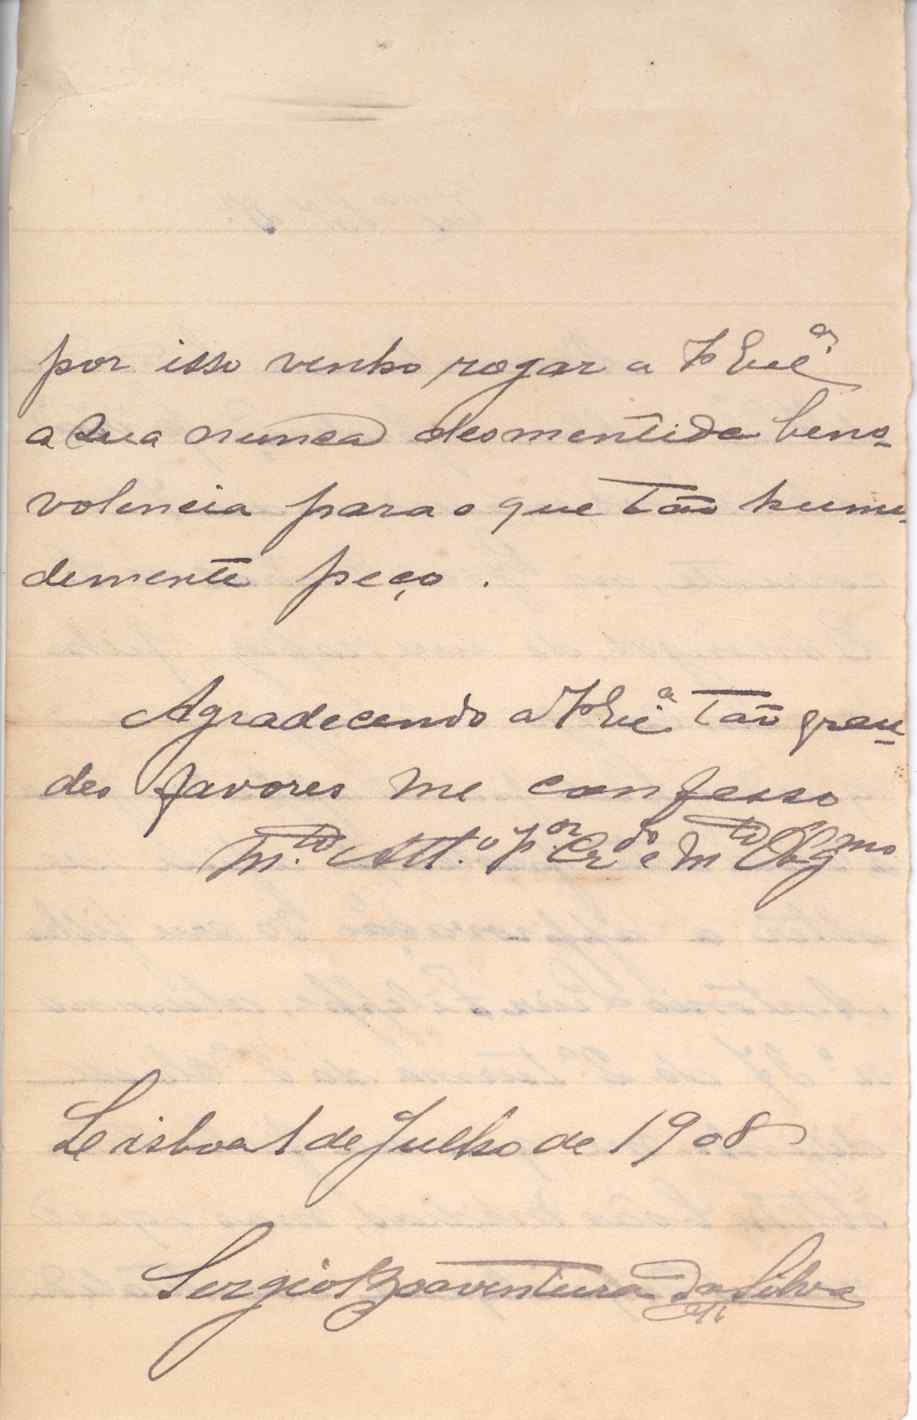 por isso venho rogar a V Excª
a sua nunca desmentida bene-
volencia para o que tão humil-
demente peço.
Agradecendo a V Excª tão gran-
des favores me confesso
M.to Att.o V.or Cr.do e M.to Obgmo
Lisboa 1 de Julho de 1908
Sergio Boaventura da Silva